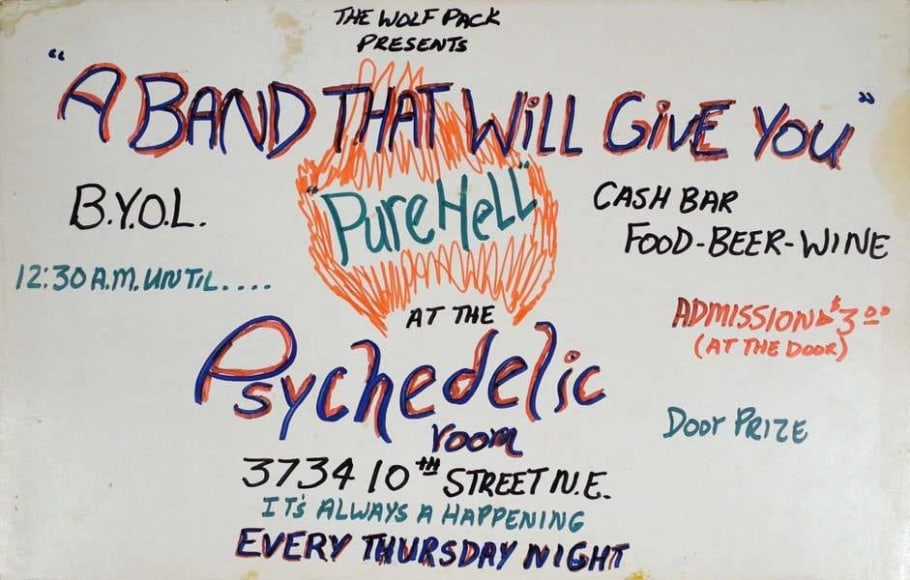 THE WOLF PACK
PRESENTS
"A BAND THAT WiLL GiVE YOU"
"Pure HeLL"
B.Y.O.L.
12:30 A.M. UNTIL....
CASH BAR
FOOD-BEER-WINE
ADMISSION $3.00
(AT THE DOOR)
AT THE
Psychedelic
room
DOOr PRIZE
3734 10TH STREET N.E.
IT'S ALWAYS A HAPPENING
EVERY THURSDAY NIGHT